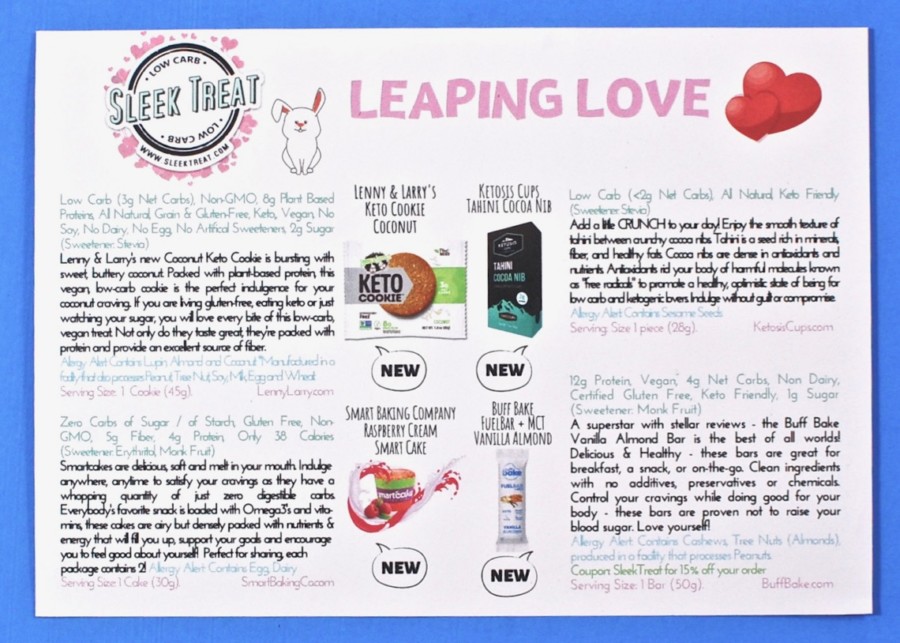 LOW CARB
SLEEK TREAT
LOW CARB
WWW.SLEEKTREAT.COM
LEAPING LOVE
Low Carb (3g Net Carbs), Non-GMO, 8g Plant Based
Proteins, All Natural, Grain & Gluten-Free, Keto, Vegan, No
Soy, No Dairy, No Egg, No Artifical Sweeteners, 2g Sugar
(Sweetener: Stevia)
Lenny & Larry's new Coconut Keto Cookie is bursting with
sweet, buttery coconut. Packed with plant-based protein, this
vegan, low-carb cookie is the perfect indulgence for your
coconut craving. If you are living gluten-free, eating keto or just
watching your sugar, you will love every bite of this low-carb,
vegan treat. Not only do they taste great, they're packed with
protein and provide an excellent source of fiber.
Allergy Alert: Contains Lupin, Almond and Coconut. *Manufactured in a
facility that also processes Peanut, Tree Nut, Soy, Milk, Egg and Wheat
Serving Size: 1 Cookie (45g). LennyLarry.com
LENNY & LARRY'S
KETO COOKIE
COCONUT
KETO
COOKIE
NEW
KETOSIS CUPS
TAHINI COCOA NIB
KETOSIS
TAHINI
COCOA NIB
NEW
Low Carb (<2g Net Carbs), All Natural, Keto Friendly
(Sweetener: Stevia)
Add a little CRUNCH to your day! Enjoy the smooth texture of
tahini between crunchy cocoa nibs. Tahini is a seed rich in minerals,
fiber, and healthy fats. Cocoa nibs are dense in antioxidants and
nutrients. Antioxidants rid your body of harmful molecules known
as "free radicals" to promote a healthy, optimistic state of being for
low carb and ketogenic lovers. Indulge without guilt or compromise.
Allergy Alert: Contains Sesame Seeds
Serving Size: 1 piece (28g). KetosisCups.com
Zero Carbs of Sugar / of Starch, Gluten Free, Non-
GMO, 5g Fiber, 4g Protein, Only 38 Calories
(Sweetener: Erythritol, Monk Fruit)
Smartcakes are delicious, soft and melt in your mouth. Indulge
anywhere, anytime to satisfy your cravings as they have a
whopping quantity of just zero digestible carbs.
Everybody's favorite snack is loaded with Omega3's and vita-
mins, these cakes are airy but densely packed with nutrients &
energy that will fill you up, support your goals and encourage
you to feel good about yourself! Perfect for sharing, each
package contains 2! Allergy Alert: Contains Egg, Dairy
Serving Size: 1 Cake (30g). SmartBakingCo.com
SMART BAKING COMPANY
RASPBERRY CREAM
SMART CAKE
smartcake
NEW
BUFF BAKE
FUELBAR + MCT
VANILLA ALMOND
bake
FUELBAR
VANILLA
NEW
12g Protein, Vegan, 4g Net Carbs, Non Dairy,
Certified Gluten Free, Keto Friendly, 1g Sugar
(Sweetener: Monk Fruit)
A superstar with stellar reviews - the Buff Bake
Vanilla Almond Bar is the best of all worlds!
Delicious & Healthy - these bars are great for
breakfast, a snack, or on-the-go. Clean ingredients
with no additives, preservatives or chemicals.
Control your cravings while doing good for your
body - these bars are proven not to raise your
blood sugar. Love yourself!
Allergy Alert: Contains Cashews, Tree Nuts (Almonds),
produced in a facility that processes Peanuts.
Coupon: SleekTreat for 15% off your order
Serving Size: 1 Bar (50g). BuffBake.com